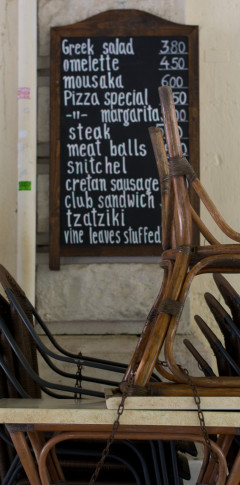 Greek salad 3.80
omelette 4.50
mousaka 6.00
Pizza special
-"- margarita
steak
meat balls
snitchel
cretan sausage
club sandwich
tzatziki
vine leaves stuffed